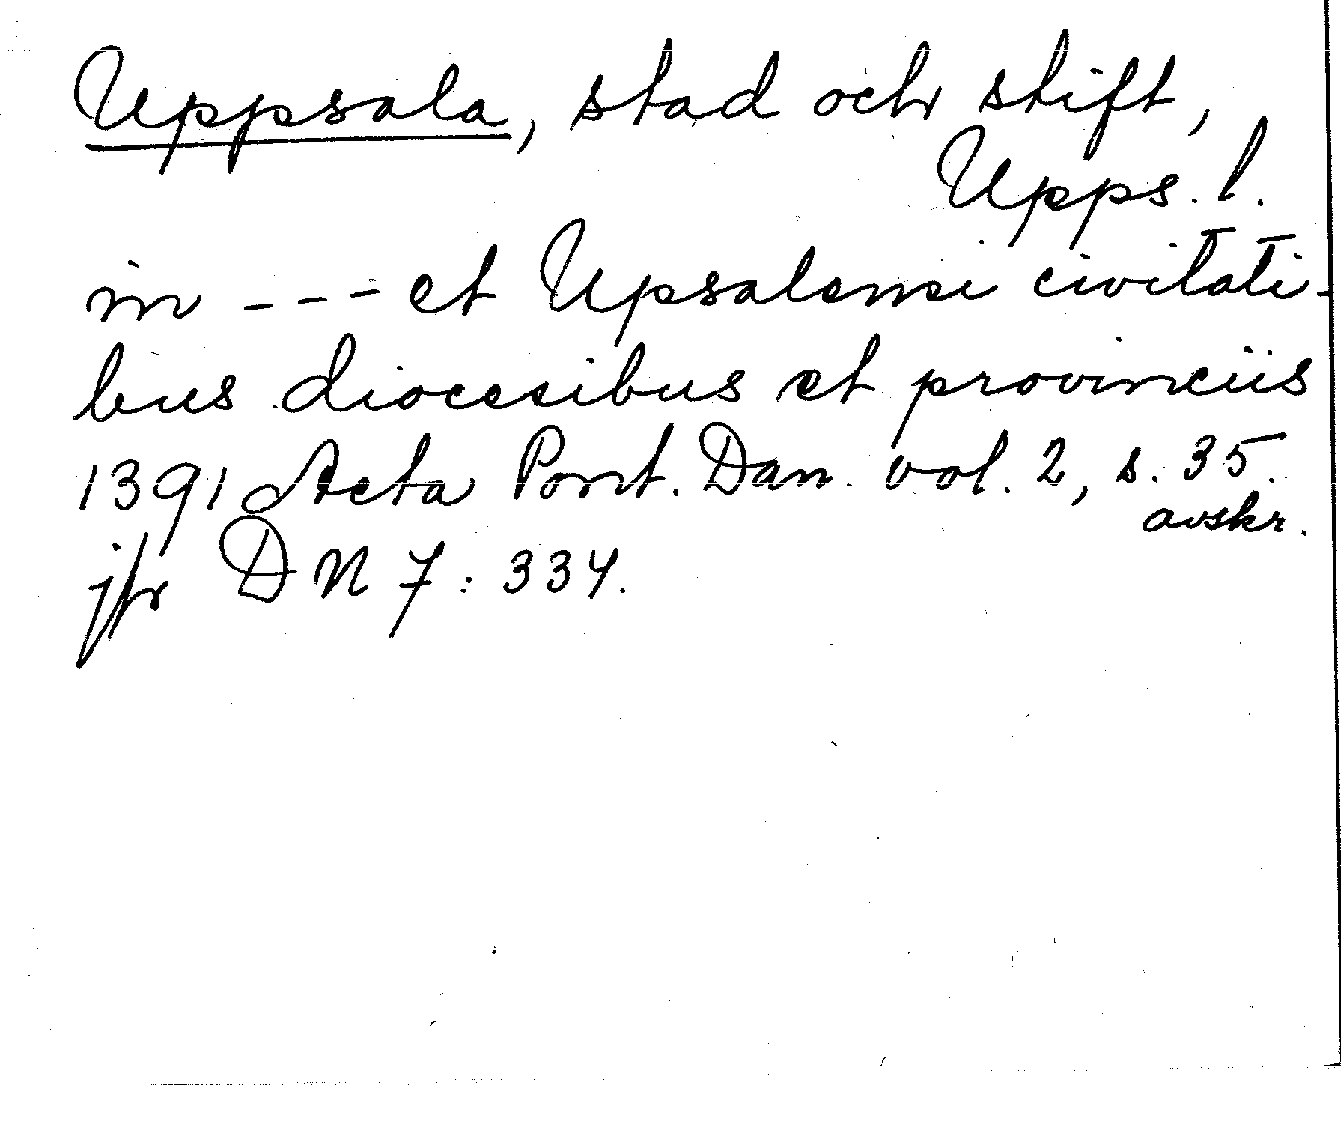 Uppsala, stad och stift,
Upps. l.
in --- et Upsalensi civitati-
bus diocesibus et provinciis
1391 Acta Pont. Dan. vol. 2, s. 35.
avskr.
jfr DN 7: 334.